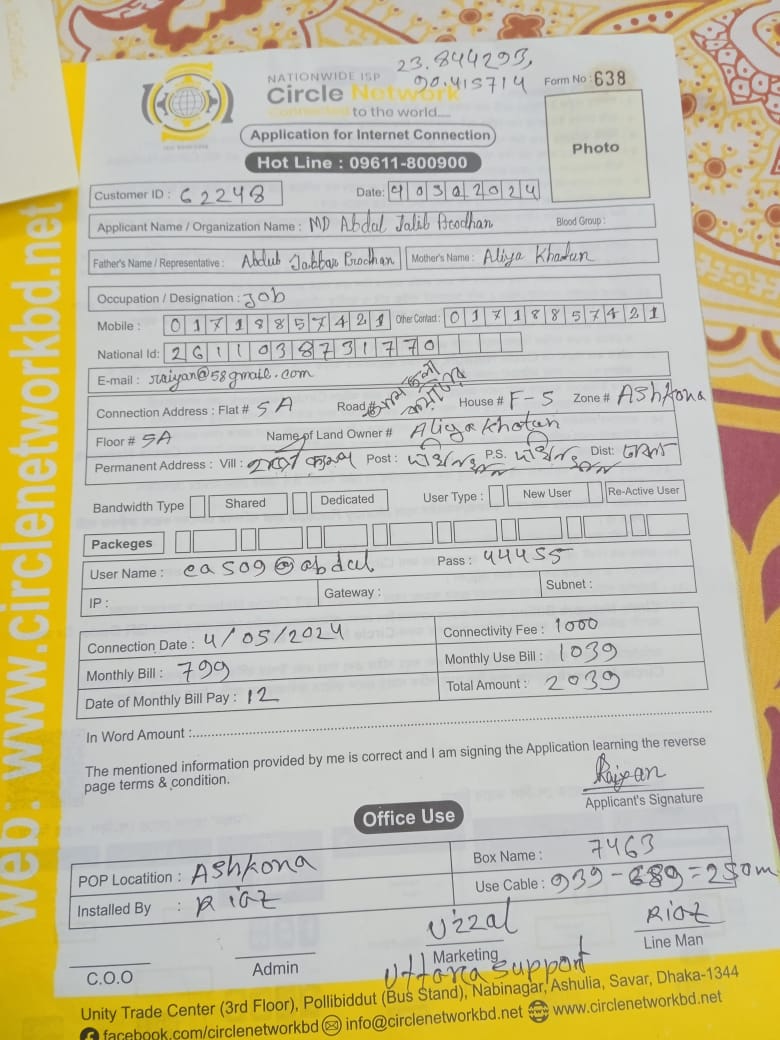 23.844293,
90.415714
NATIONWIDE ISP
Circle Network
Connected to the world....
Form No : 638
Application for Internet Connection
Hot Line : 09611-800900
Photo
Customer ID : 62248
Date: 4 0 5 0 2 0 2 4
Applicant Name / Organization Name : MD Abdul Jalil Prodhan Blood Group :
Father's Name / Representative : Abdub Jabbar Prodhan Mother's Name : Aliya Khatun
Occupation / Designation : Job
Mobile : 01718857421 Other Contact : 01718857421
National Id: 2611038731770
E-mail : raiyan@58gmail.com
Connection Address : Flat # 5A Road # House # F-5 Zone # Ashkona
Floor # 5A Name of Land Owner # Aliya khatun
Permanent Address : Vill : Post : P.S. Dist: ঢাকা
Bandwidth Type Shared Dedicated User Type : New User Re-Active User
Packeges
User Name : ea509@abdul Pass : 44455
IP : Gateway : Subnet :
Connection Date : 4/05/2024 Connectivity Fee : 1000
Monthly Bill : 799 Monthly Use Bill : 1039
Date of Monthly Bill Pay : 12 Total Amount : 2039
In Word Amount :
The mentioned information provided by me is correct and I am signing the Application learning the reverse
page terms & condition.
Raiyan
Applicant's Signature
Office Use
POP Locatition : Ashkona Box Name : 7463
Installed By : Riaz Use Cable : 939 - 689 = 250m
C.O.O
Admin
Uzzal
Marketing
Uttara support
Riaz
Line Man
Unity Trade Center (3rd Floor), Pollibiddut (Bus Stand), Nabinagar, Ashulia, Savar, Dhaka-1344
facebook.com/circlenetworkbd info@circlenetworkbd.net www.circlenetworkbd.net
web: www.circlenetworkbd.net